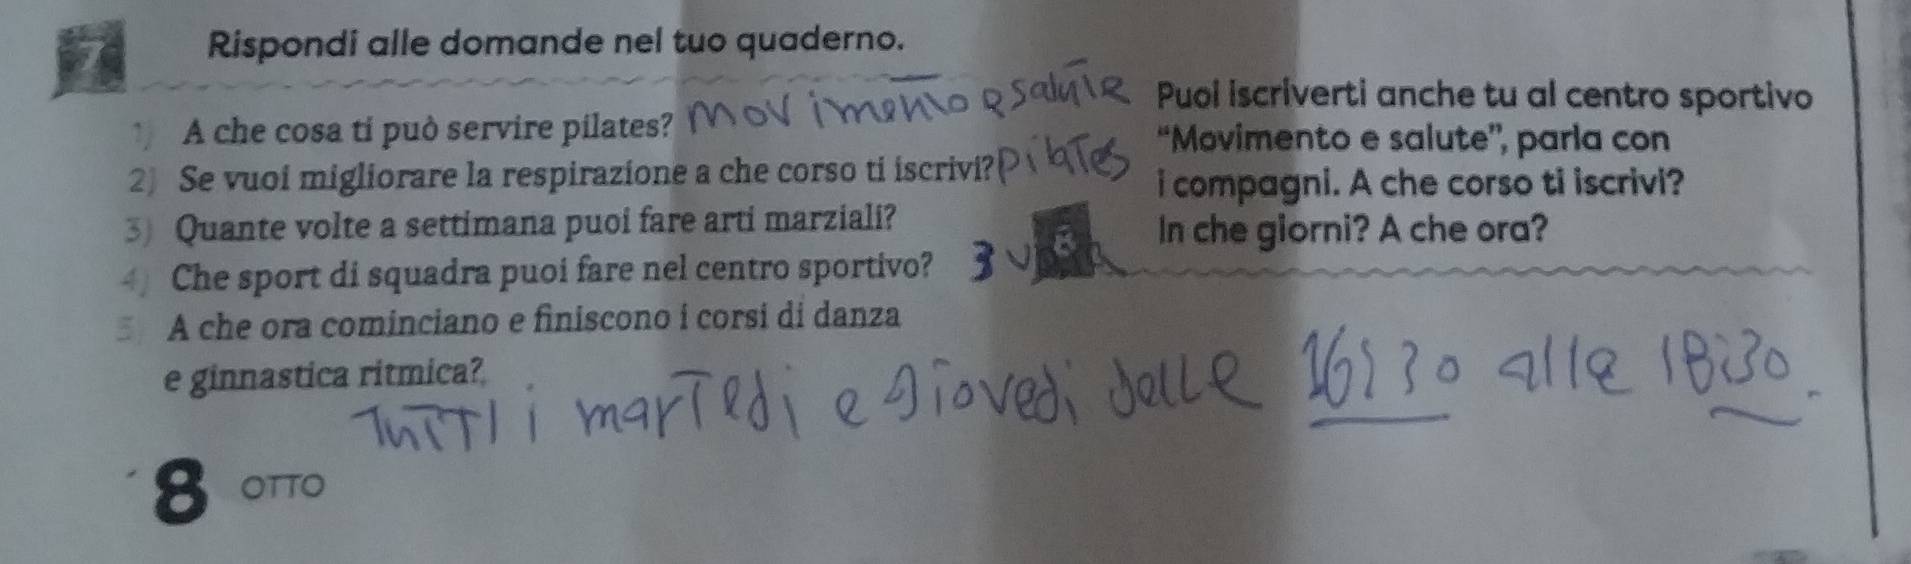 7 Rispondi alle domande nel tuo quaderno.
1) A che cosa ti può servire pilates? movimento e salute
2) Se vuoi migliorare la respirazione a che corso ti iscrivi? pilates
3) Quante volte a settimana puoi fare arti marziali?
4) Che sport di squadra puoi fare nel centro sportivo? 3
5) A che ora cominciano e finiscono i corsi di danza
e ginnastica ritmica?
Tutti i martedi e giovedi dalle 16:30 alle 18:30.
Puoi iscriverti anche tu al centro sportivo
“Movimento e salute”, parla con
i compagni. A che corso ti iscrivi?
In che giorni? A che ora?
8 OTTO